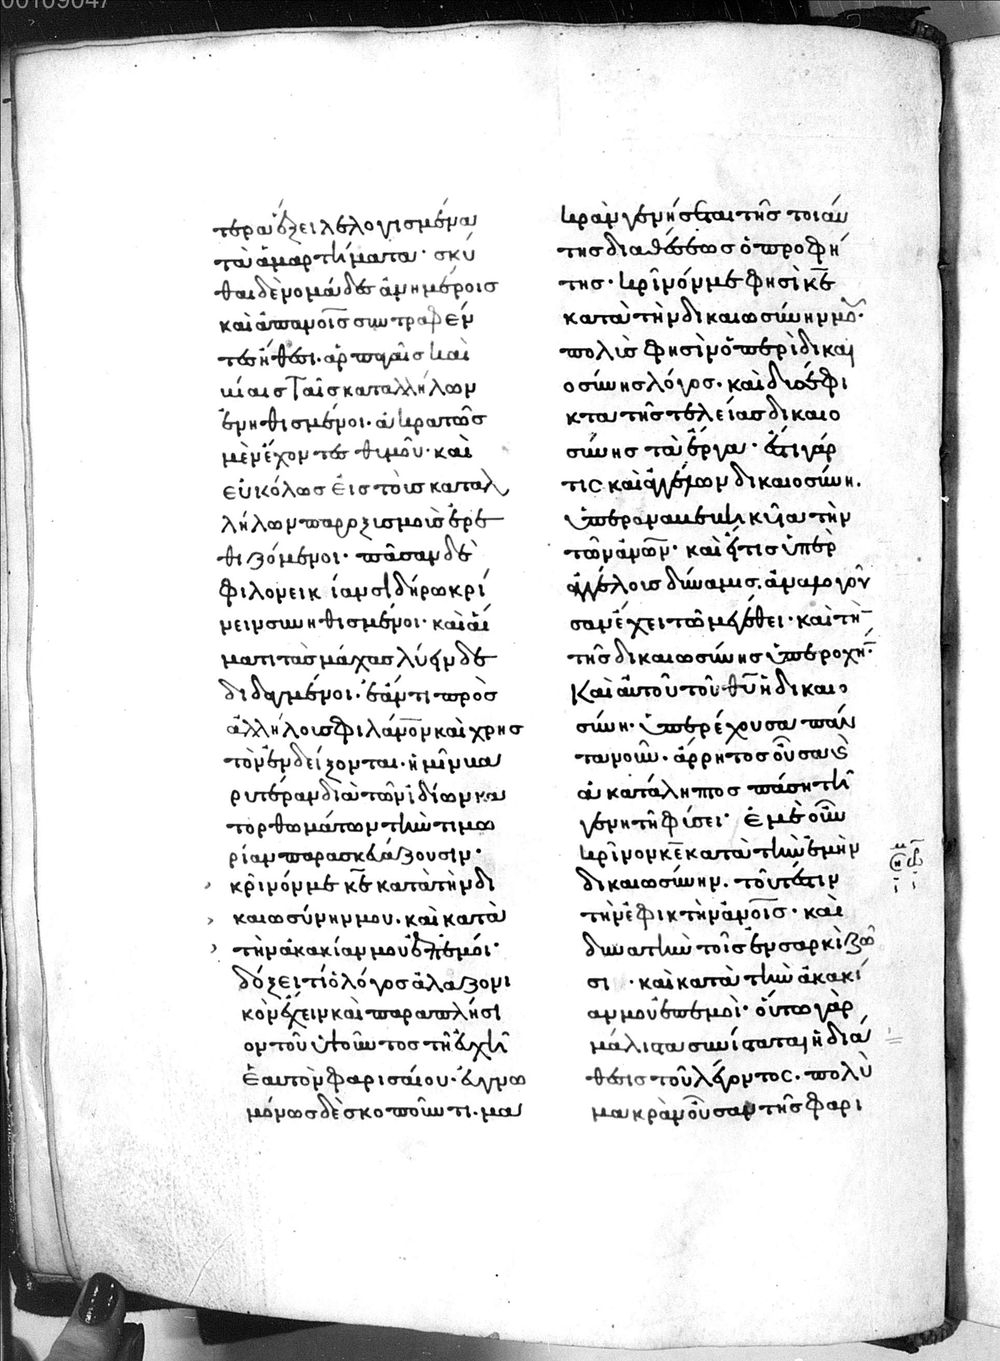 00109047
τερα δόξει λελογισμένα
τὰ ἁμαρτήματα· σκύ
θαι δὲ νομάδες ἀνημέροις
καὶ ἀπανοις συντραφέν
τες ἤθεσι. ἁρπαγαῖς καὶ
νίαις ταῖς καταλλήλων
ἐνηθισμένοι. ἀκρατῶς
μὲν ἔχοντες θυμοῦ· καὶ
εὐκόλως εἰς τοὺς καταλ
λήλων παροξισμοὺς ἐρε
θιζόμενοι· πᾶσαν δὲ
φιλονεικίαν σιδήρω κρί
νειν συνηθισμένοι· καὶ αἵ
ματι τὰς μάχας λύειν δε
διδαγμένοι. ἐάν τι πρὸς
ἀλλήλοις φιλάνον καὶ χρησ
τὸν ἐνδείξονται. ἡμῖν βα
ρυτέραν διὰ τῶν ἰδίων κα
τορθωμάτων τὴν τιμω
ρίαν παρασκευάζουσιν·
κρῖνόν με κε κατὰ τὴν δι
καιωσύνην μου. καὶ κατὰ
τὴν ἀκακίαν μου ἐπ' ἐμοί·
δόξει τί ὁ λόγος ἀλαζονι
κὸν ἔχειν καὶ παραπλήσι
ον τοῦ ὑψοῦντος τῇ εὐχῇ
ἑαυτὸν φαρισαίου. εὐγνω
μόνως δὲ σκοποῦντι. μα
κρὰν γενήσεται τῆς τοιαύ
της διαθέσεως ὁ προφή
της· κρῖνόν με φησὶ κε
κατὰ τὴν δικαιωσύνην μου·
πολὺς φησὶν ὁ περὶ δικαι
οσύνης λόγος. καὶ δυσέφι
κτα τῆς τελείας δικαιο
σύνης τὰ ἔργα· ἔστι γάρ
τις καὶ ἀγγέλων δικαιοσύνη.
ὑπεραναβεβηκυῖα τὴν
τῶν ἀνων· καὶ εἴ τις ὑπὲρ
ἀγγέλοις δύναμις. ἀναλογοῦ
σαν ἔχει τῶ μεγέθει· καὶ τὴν
τῆς δικαιωσύνης ὑπεροχήν·
Καὶ αὐτοῦ τοῦ θυ ἡ δικαιο
σύνη. ὑπερέχουσα πάν
τα νοῦν. ἄρρητος οὖσα καὶ
ἀκατάληπτος πάσῃ τῇ
γενητῇ φύσει· ἐμὲ οὖν
κρῖνον κε κατὰ τὴν ἐμὴν
δικαιωσύνην. τουτέστιν
τὴν ἐφικτὴν ἀνοις. καὶ
δυνατὴν τοῖς ἐν σαρκὶ ζῶ
σι · καὶ κατὰ τὴν ἀκακί
αν μου ἐπ' ἐμοί· οὕτω γὰρ
μάλιστα συνίσταται ἡ διά
θεσις τοῦ λέγοντος. πολὺ
μακρὰν οὖσαν τῆς φαρι